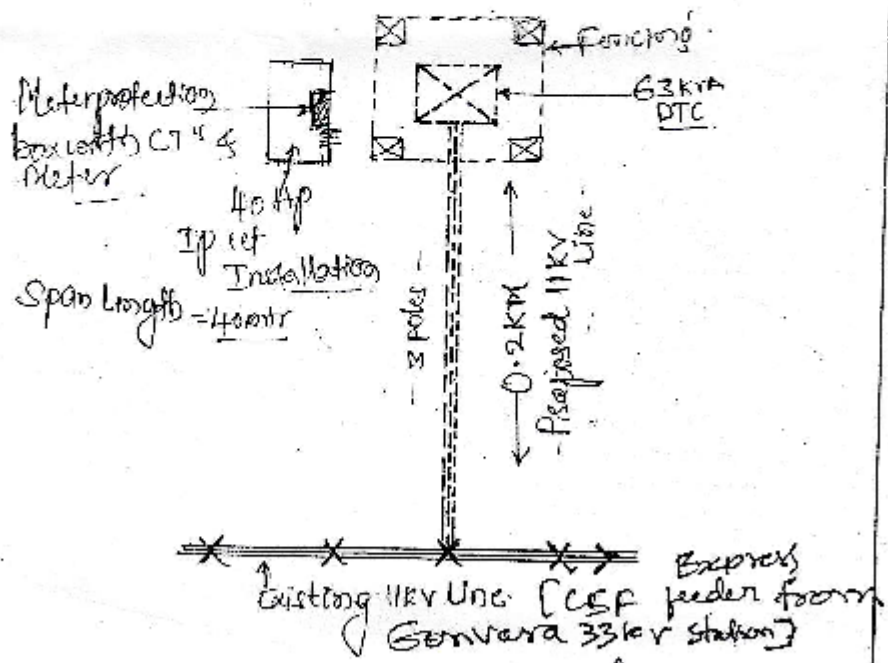 Fencing
63 KVA
DTC
Meter protection
box with CTs &
Meter
40 Hp
Ip set
Installation
Span Length = 40mtr
3 poles
0.2KM
Proposed 11KV
Line
Existing 11KV Line [ feeder from
Express
33kv station]